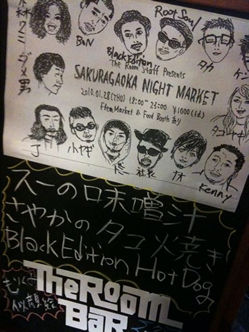 Root Soul
BnN
タケ
Black Edition
The Room Staff Presents
SAKURAGAOKA NIGHT MARKET
2010.01.28(THU) 18:00~23:00 ¥1000(1d)
Flea Market & Food Booth etc
J
小ヤギ
社長
Kenny
えーの味噌汁
さやかのタコ焼き
Black Edition Hot Dog
THE ROOM
BAR
似顔絵